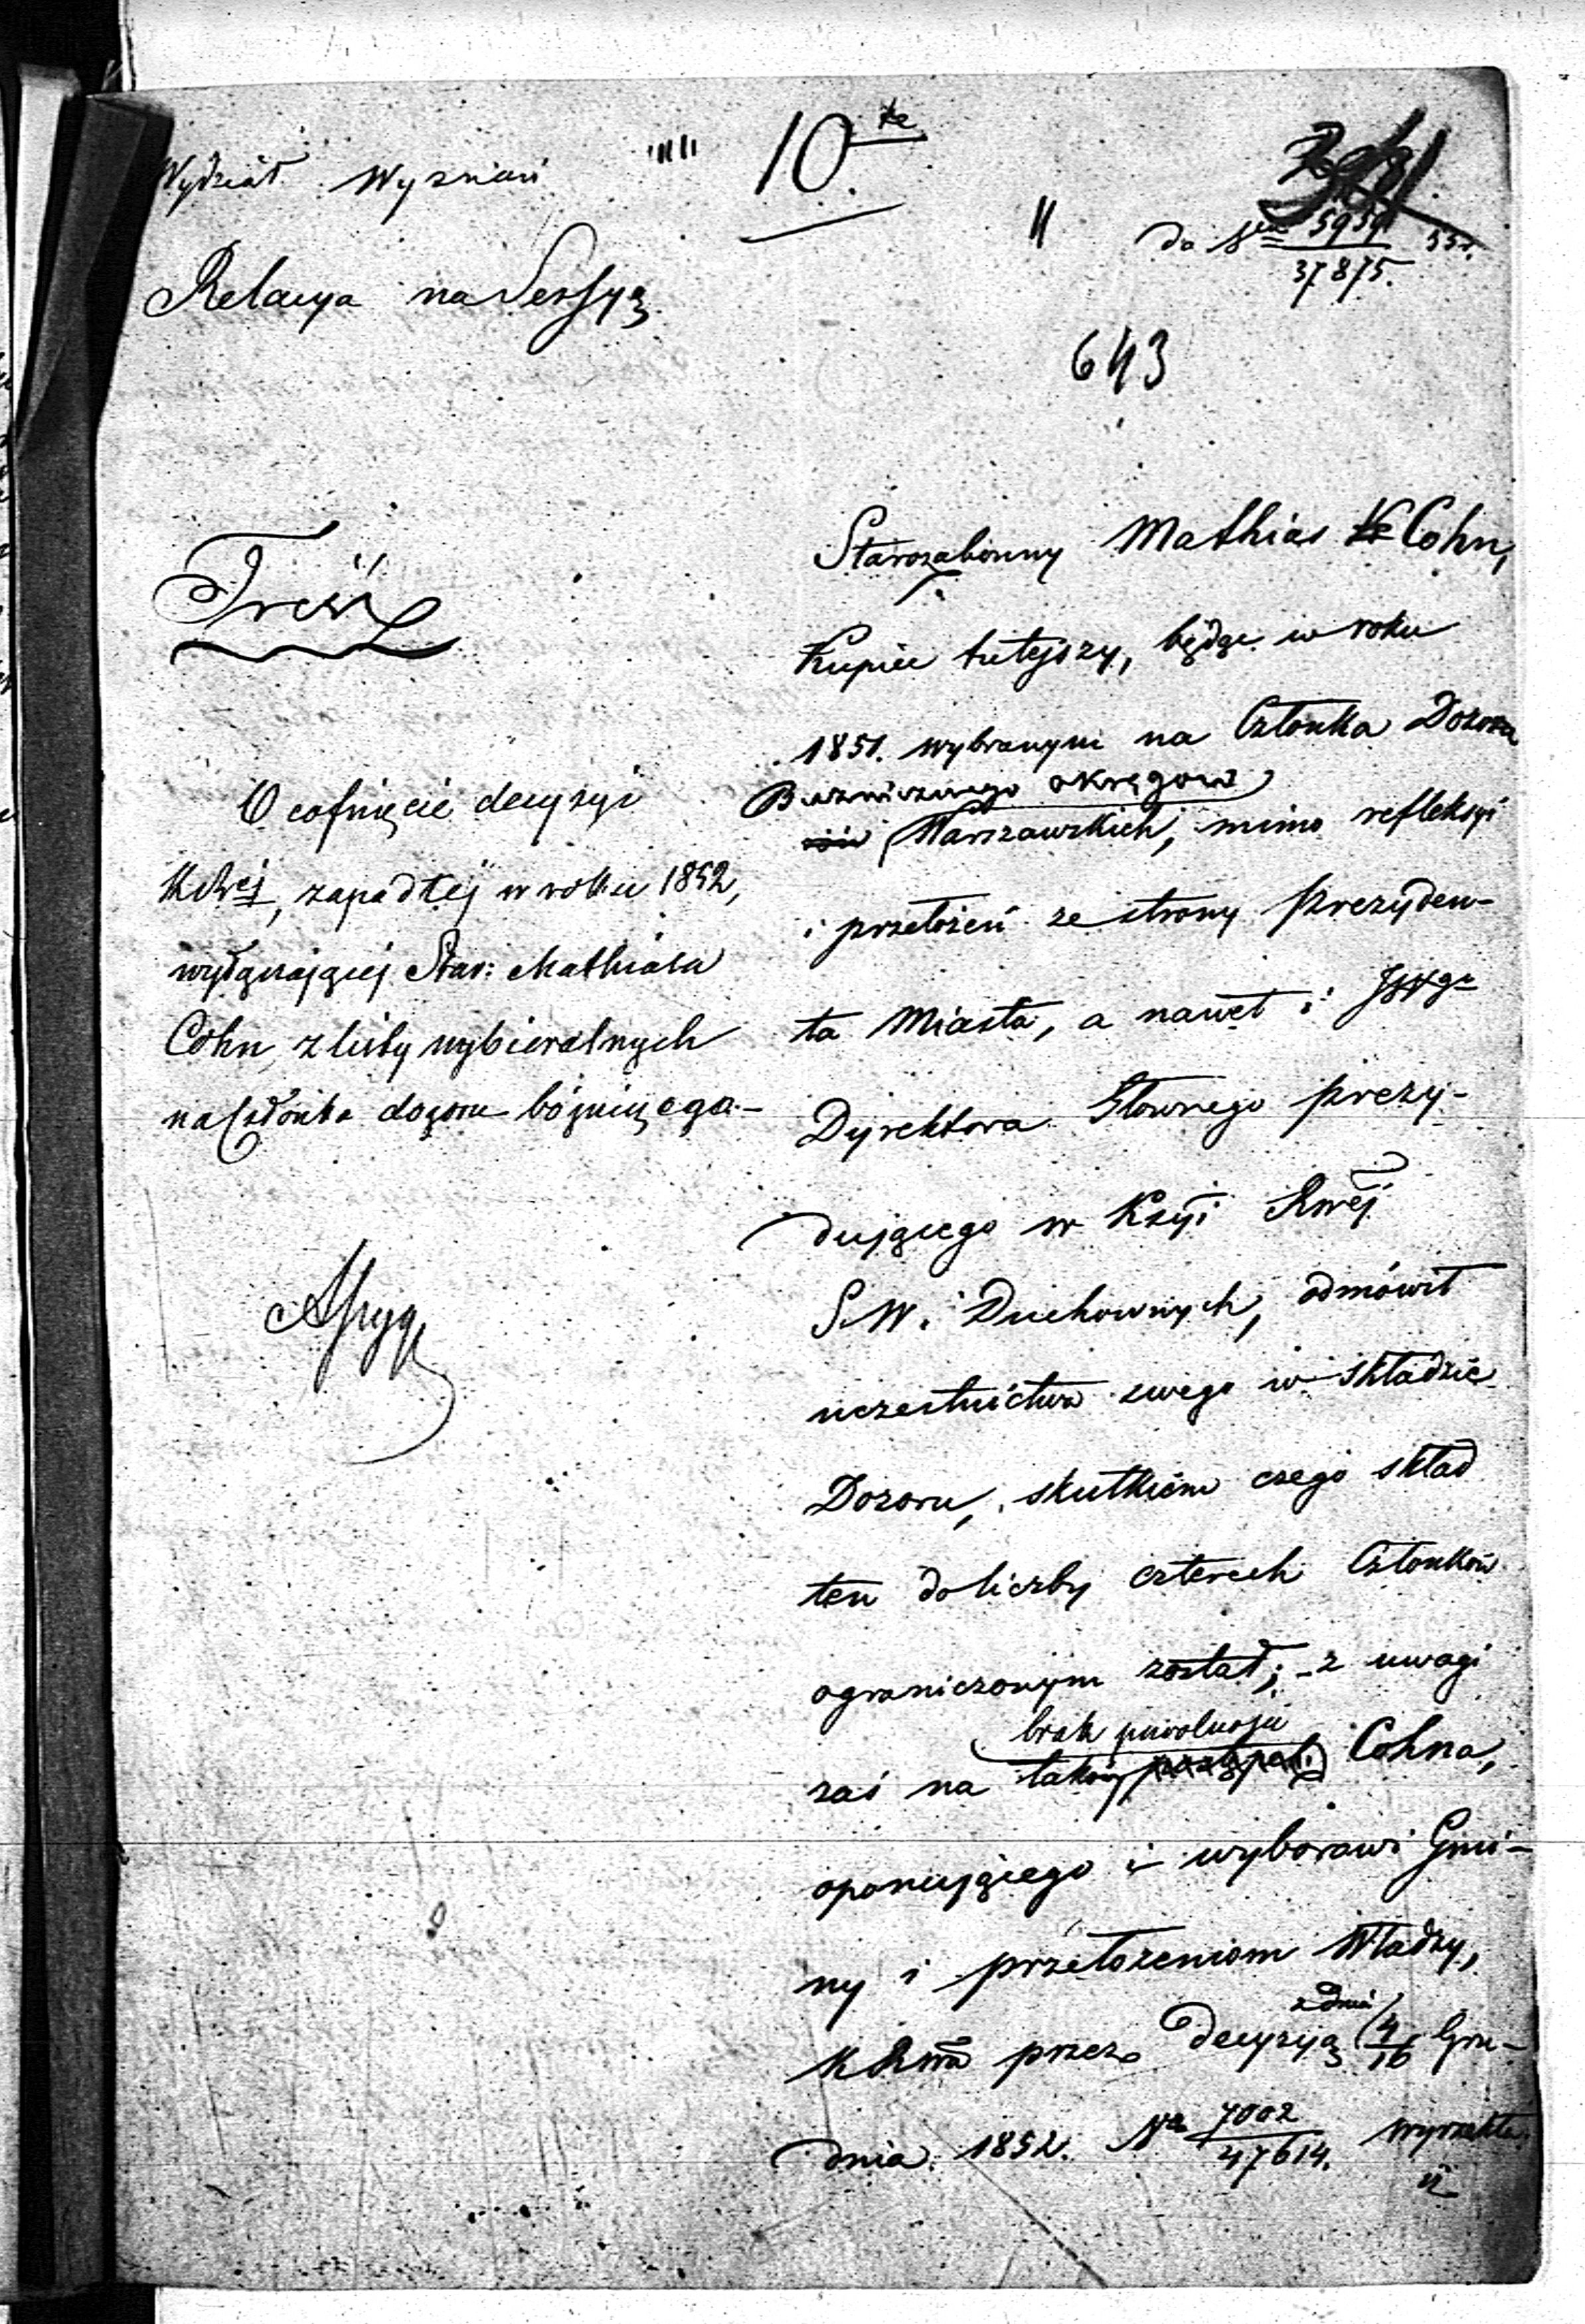 Wydział Wyznań
10.
do Nru 5959/37875.
Relacya na Sessyą
643
Treść
O cofnięcie decyzyi
KRwéj, zapadłéj w roku 1852,
wyłączającéj Star: Mathiasa
Cohn z listy wybieralnych
na Członka dozoru bóżniczego.—
Starozakonny Mathias Cohn,
Kupiec tutejszy, będąc w roku
1851. wybranym na Członka Dozoru
Bużniczego okręgów
Warszawskich, mimo refleksyi
i przełożeń ze strony Prezyden-
ta Miasta, a nawet i JWgo
Dyrektora Głównego prezy-
dującego w Kssyi Rwéj
S. W. i Duchownych, odmówił
uczestnictwa swego w składzie
Dozoru, skutkiem czego skład
ten do liczby czterech Członków
ograniczonym został; - z uwagi
brak powolności
zaś na taki Cohna,
oponującego i wyborowi Gmi-
ny i przełożeniom Władzy,
KRwa przez Decyzyą z dnia 4/16 Gru-
dnia 1852. No 7002/47614. wyrzekła
iż